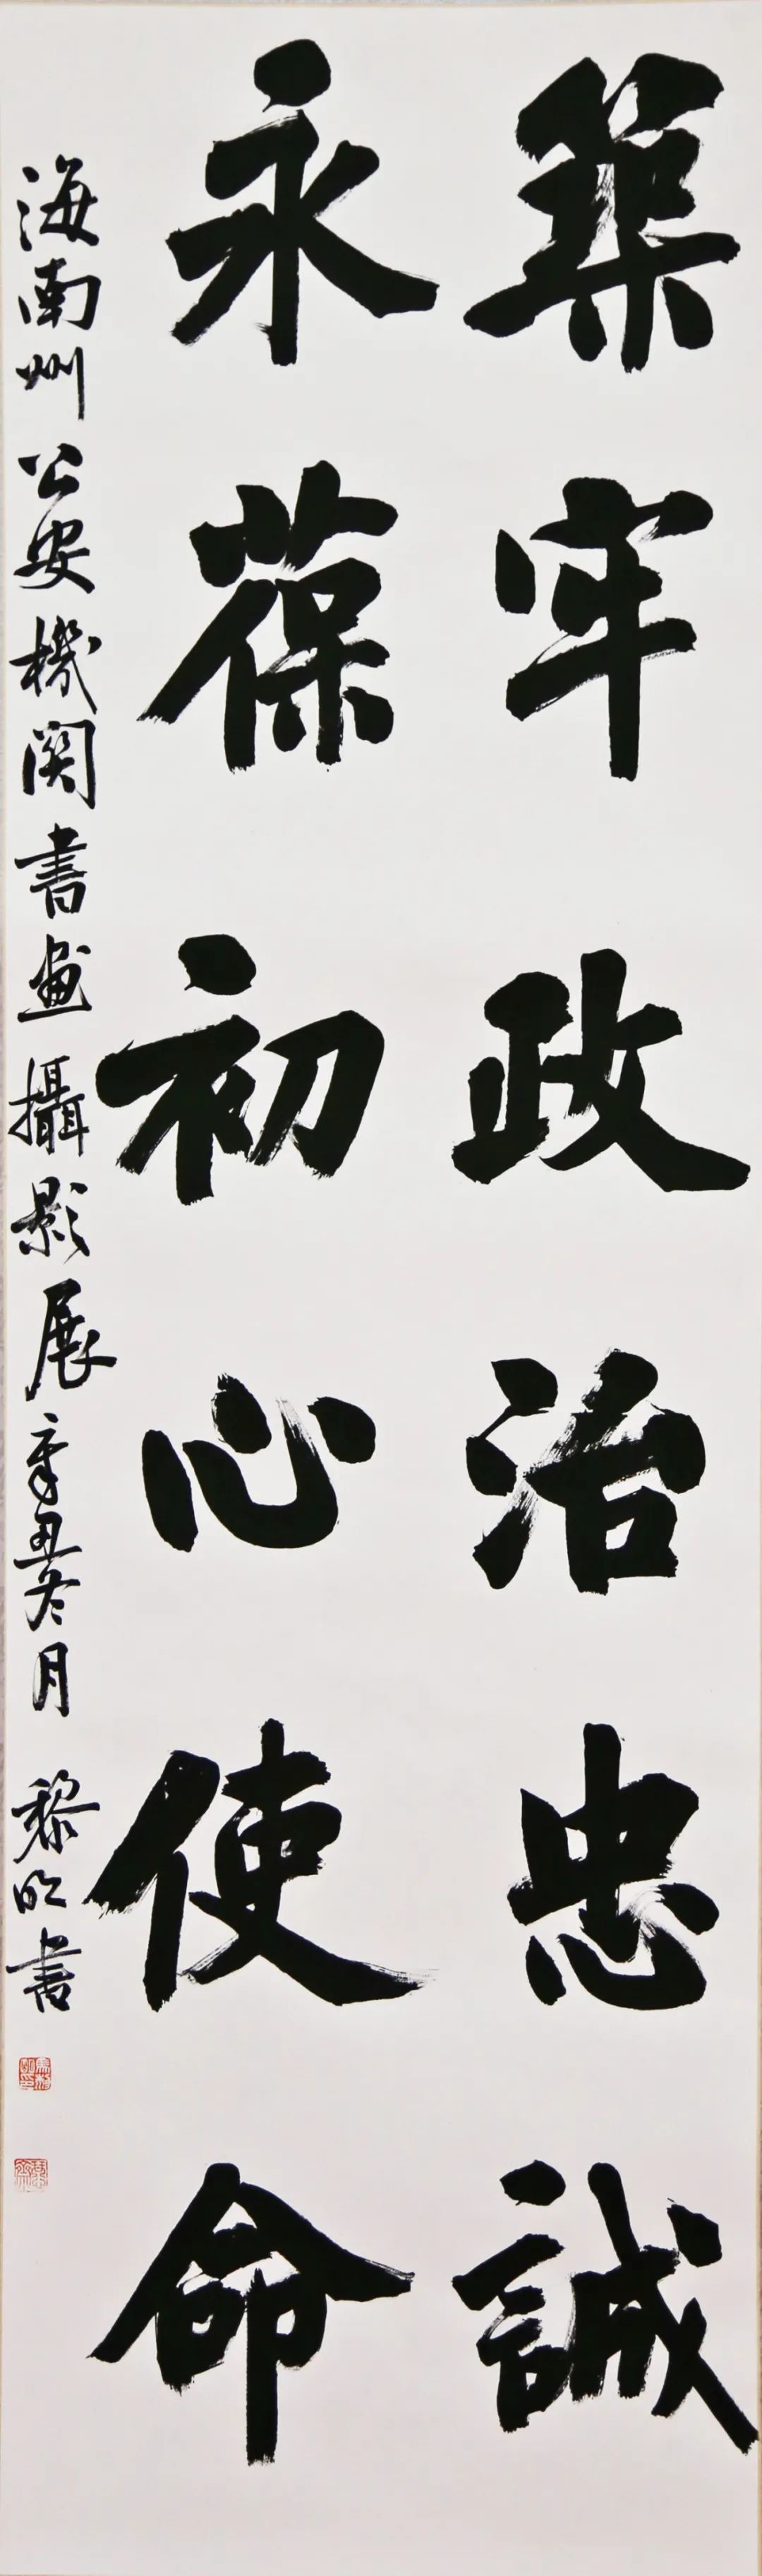 築牢政治忠誠
永葆初心使命
海南州公安機関書畫攝影展辛丑冬月 黎明書